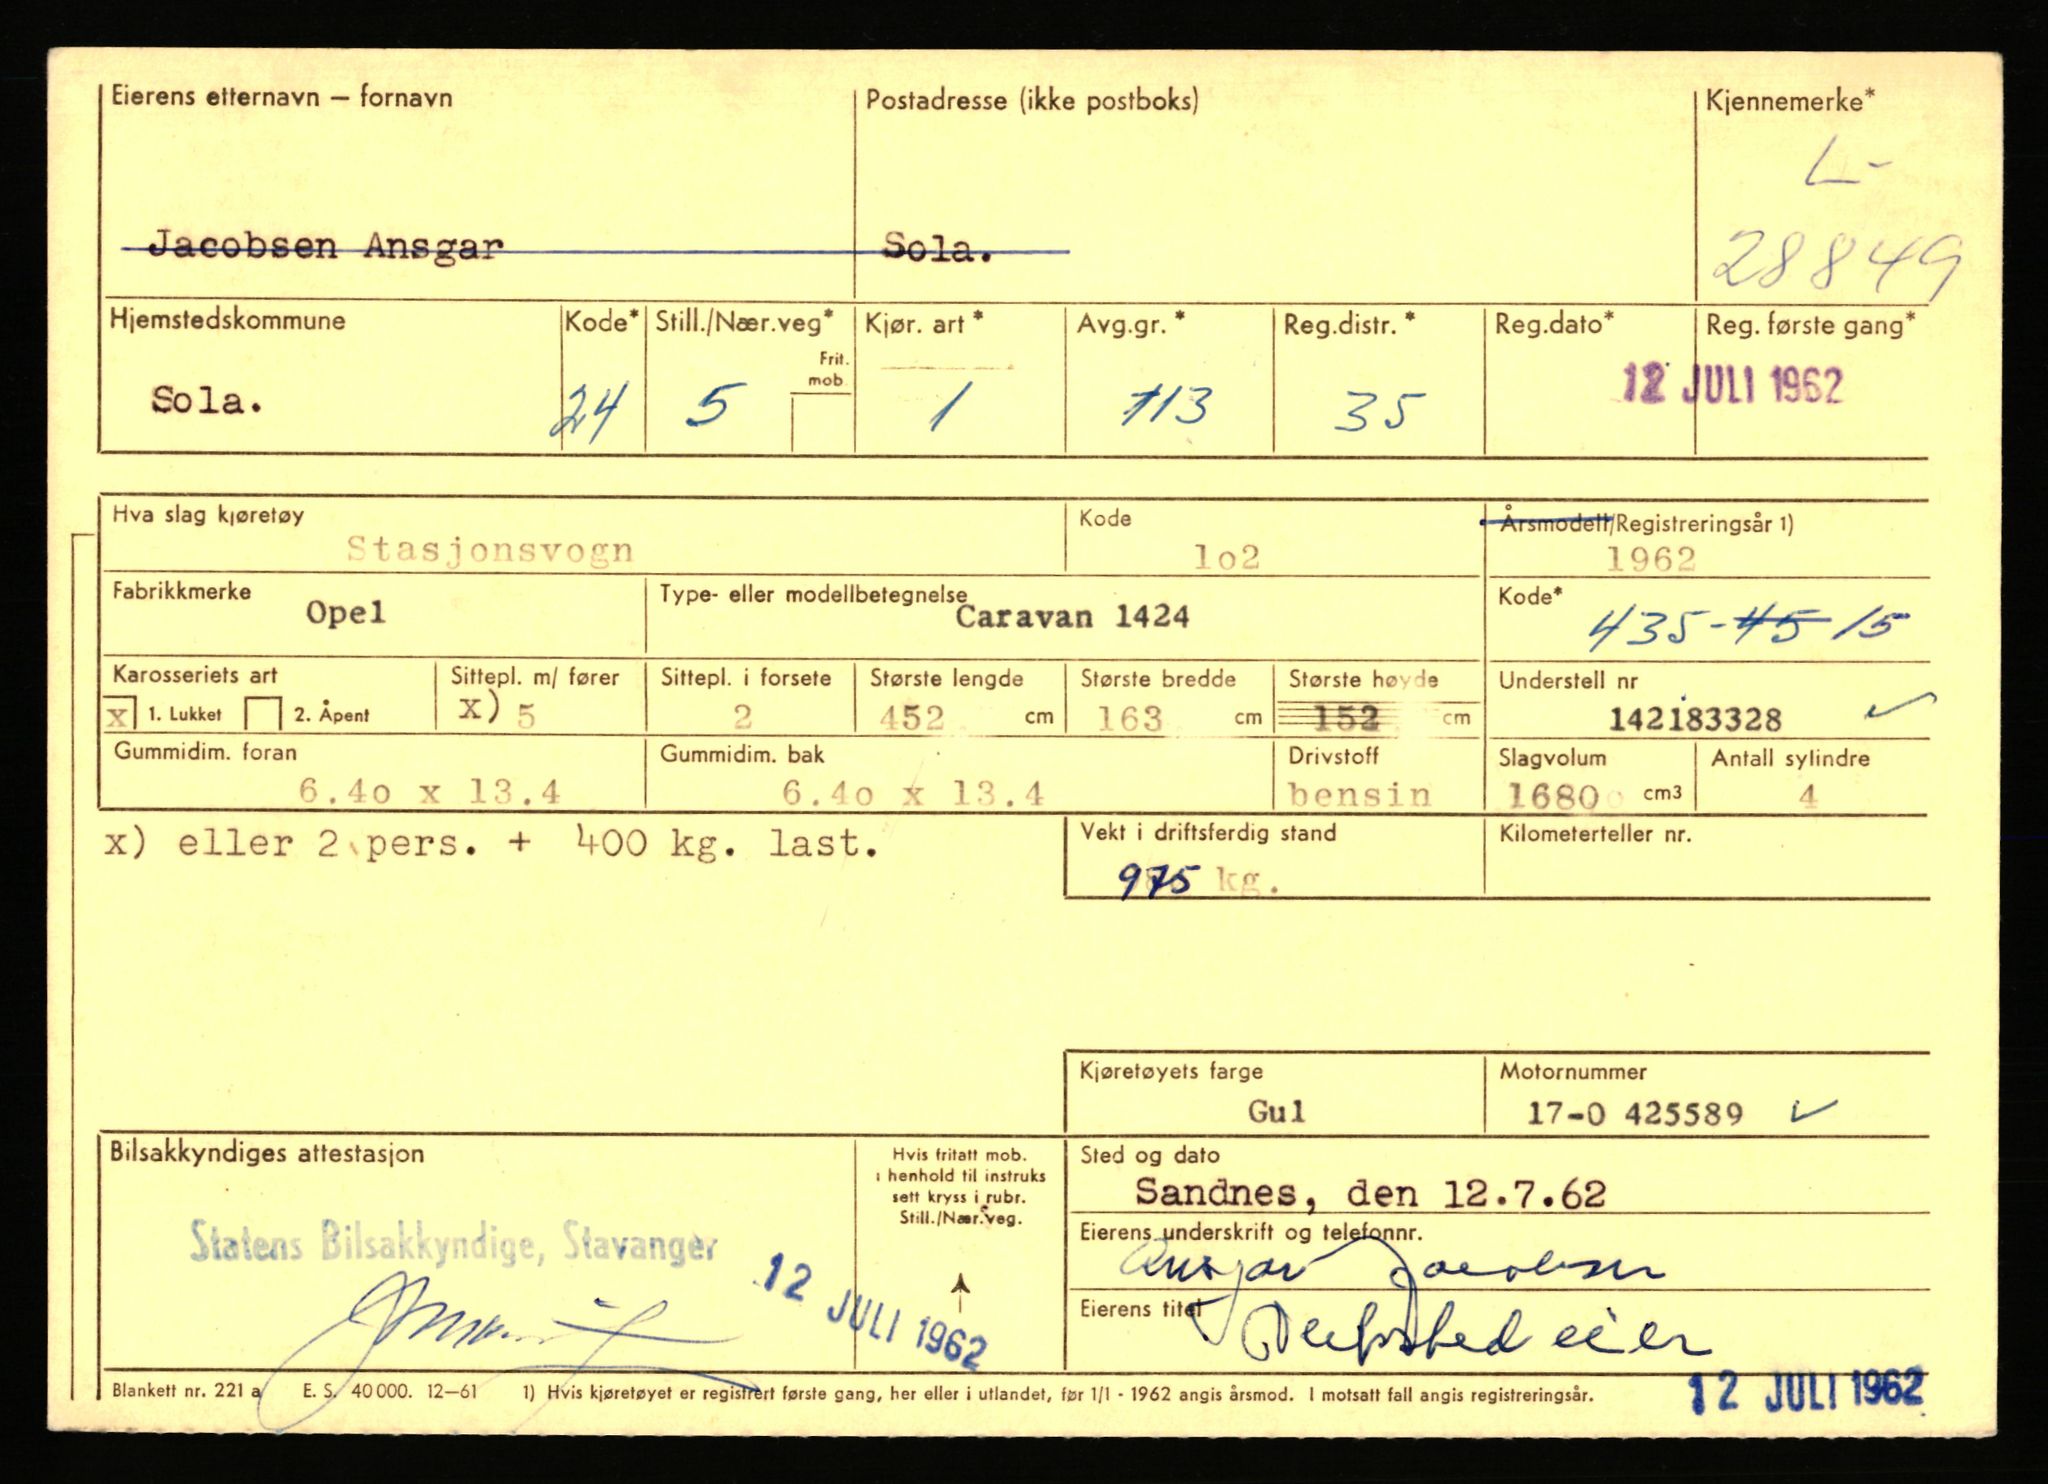 Eierens etternavn – fornavn Postadresse (ikke postboks) Kjennemerke*
L-
28849
Jacobsen Ansgar Sola.
Hjemstedskommune Kode* Still./Nær.veg* Kjør. art * Avg.gr. * Reg.distr. * Reg.dato* Reg. første gang*
Frit.
mob.
Sola. 24 5 1 113 35 12 JULI 1962
Hva slag kjøretøy Kode Årsmodell/Registreringsår 1)
Stasjonsvogn 1o2 1962
Fabrikkmerke Type- eller modellbetegnelse Kode*
Opel Caravan 1424 435-45 15
Karosseriets art Sittepl. m/ fører Sittepl. i forsete Største lengde Største bredde Største høyde Understell nr
x 1. Lukket 2. Åpent x) 5 2 452 cm 163 cm 152 cm 142183328
Gummidim. foran Gummidim. bak Drivstoff Slagvolum Antall sylindre
6.4o x 13.4 6.4o x 13.4 bensin 1680 cm3 4
x) eller 2 pers. + 400 kg. last. Vekt i driftsferdig stand Kilometerteller nr.
975 kg.
Kjøretøyets farge Motornummer
Gul 17-0 425589
Bilsakkyndiges attestasjon Hvis fritatt mob. Sted og dato
i henhold til instruks
sett kryss i rubr.
Still./Nær.veg.
Sandnes, den 12.7.62
Eierens underskrift og telefonnr.
Statens Bilsakkyndige, Stavanger
Ansgar Jacobsen
12 JULI 1962
Eierens titel
Blankett nr. 221 a E. S. 40 000. 12–61 1) Hvis kjøretøyet er registrert første gang, her eller i utlandet, før 1/1 - 1962 angis årsmod. I motsatt fall angis registreringsår.
12 JULI 1962